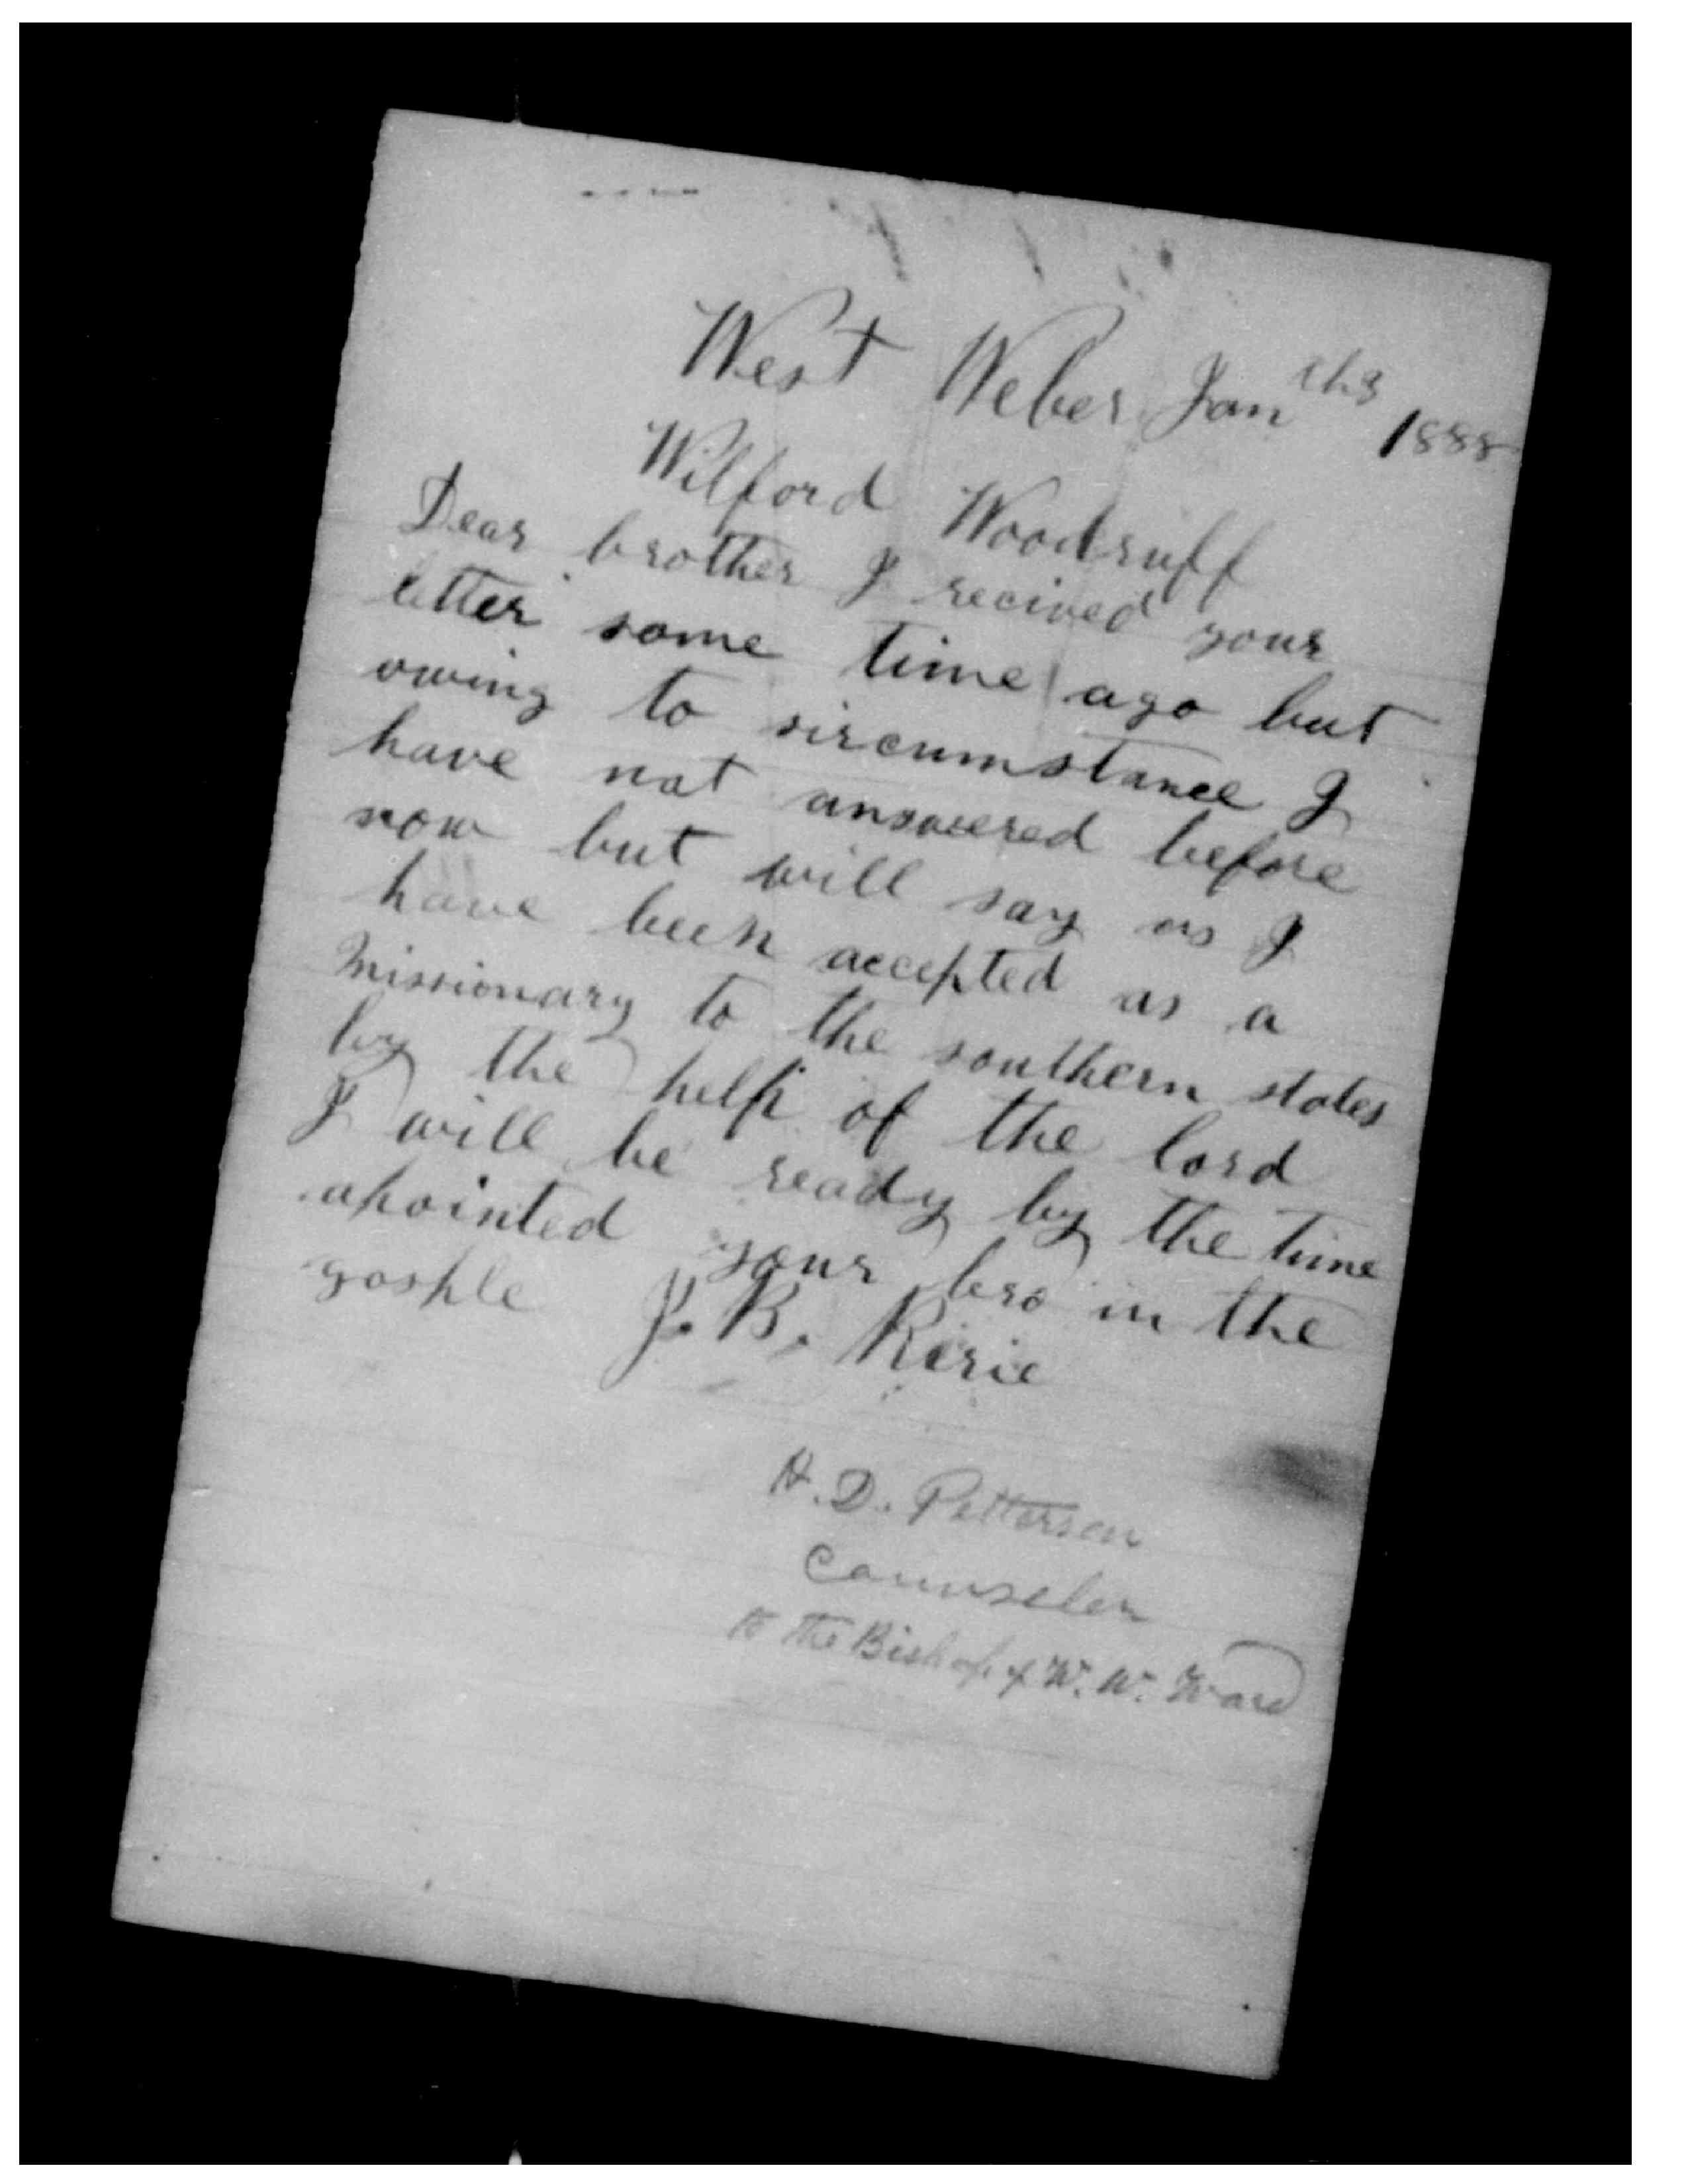 West Weber Jan th3 1888
Wilford Woodruff
Dear brother I recived your
letter some time ago but
owing to sircumstance I
have not answered before
now but will say as I
have been accepted as a
missionary to the southern states
by the help of the lord
I will be ready by the time
apointed your bro in the
gosple J. B. Ririe
H. D. Petterson
Counseler
to the Bishop of W. W. Ward